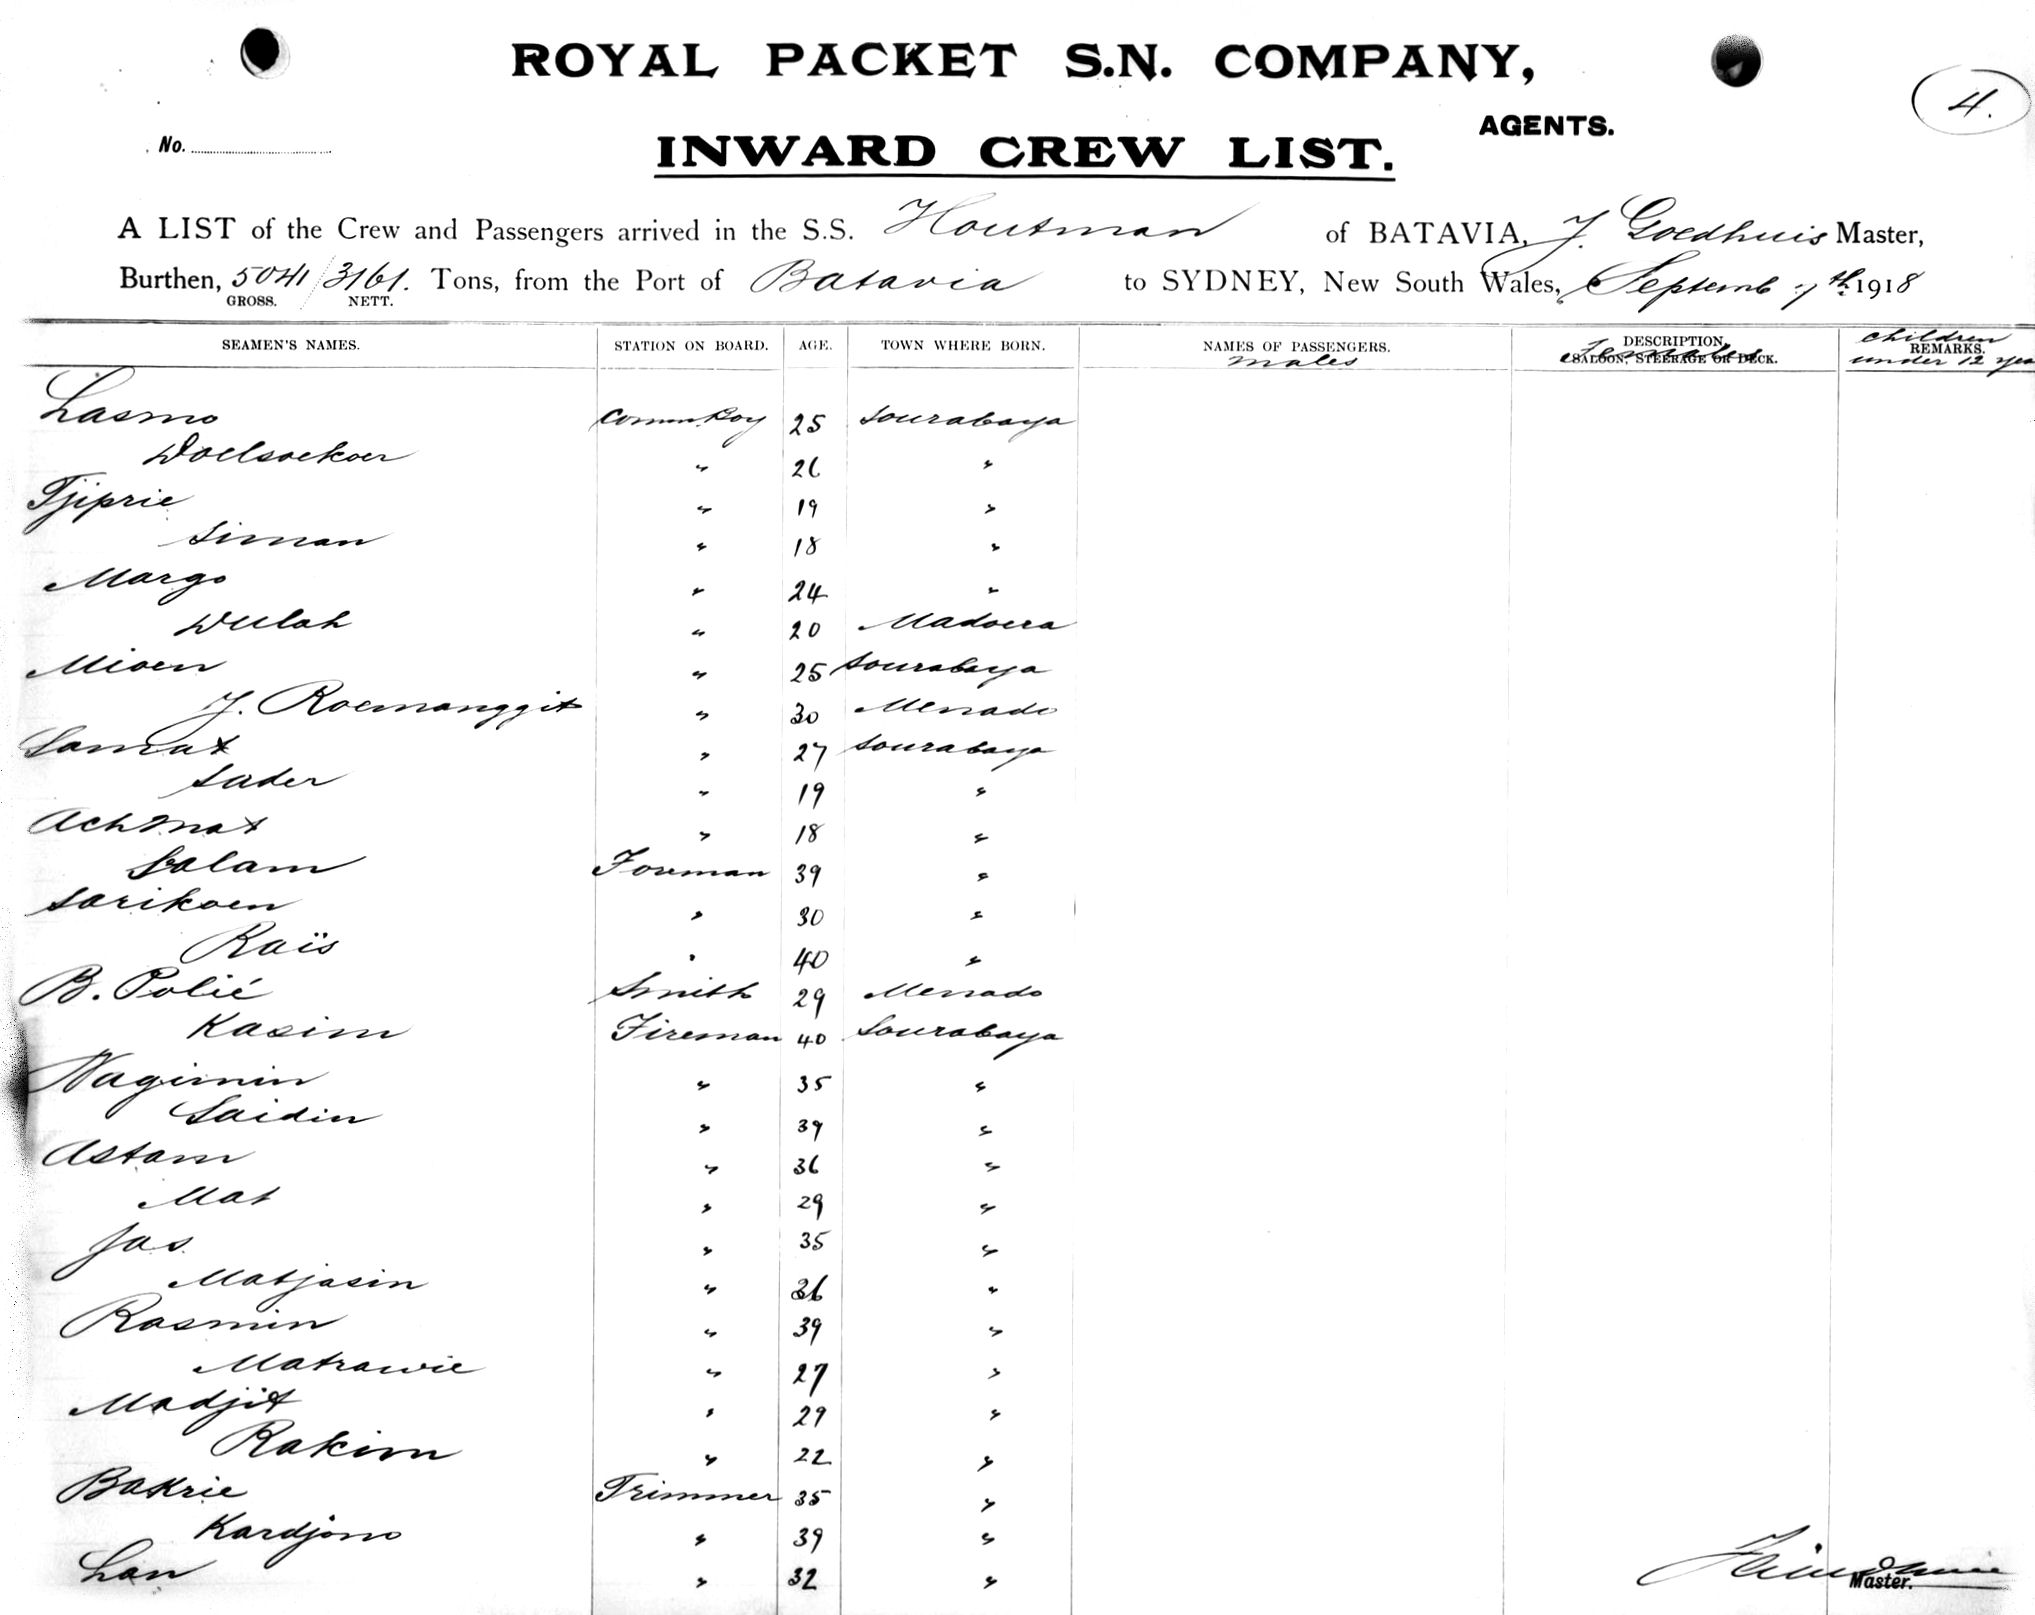 ROYAL PACKET S.N. COMPANY,
AGENTS.
4.
No.
INWARD CREW LIST.
A LIST of the Crew and Passengers arrived in the S.S. Houtman of BATAVIA, J. Goedhuis Master,
Burthen, 5041/3161. Tons, from the Port of Batavia to SYDNEY, New South Wales, Septemb 7th 1918
GROSS. NETT.
SEAMEN'S NAMES. STATION ON BOARD. AGE. TOWN WHERE BORN. NAMES OF PASSENGERS. males DESCRIPTION, SALOON, STEERAGE OR DECK. Females REMARKS. children under 12 yea
Lasmo Comm. Boy 25 Sourabaya
Doelsoekoer " 26 "
Tjiprie " 19 "
Siman " 18 "
Margo " 24 "
Dulah " 20 Madoera
Mioen " 25 Sourabaya
J. Roemanggit " 30 Menado
Samat " 27 Sourabaya
Sader " 19 "
Achmat " 18 "
Salam Foreman 39 "
Sarikoen " 30 "
Raïs " 40 "
B. Polié Smith 29 Menado
Kasim Fireman 40 Sourabaya
Wagimin " 35 "
Saidin " 39 "
Astam " 36 "
Mat " 29 "
Jas " 35 "
Matjasin " 36 "
Rasmin " 39 "
Matrawie " 27 "
Madjit " 29 "
Rakim " 22 "
Bakrie Trimmer 35 "
Kardjono " 39 "
Lan " 32 "
Master.